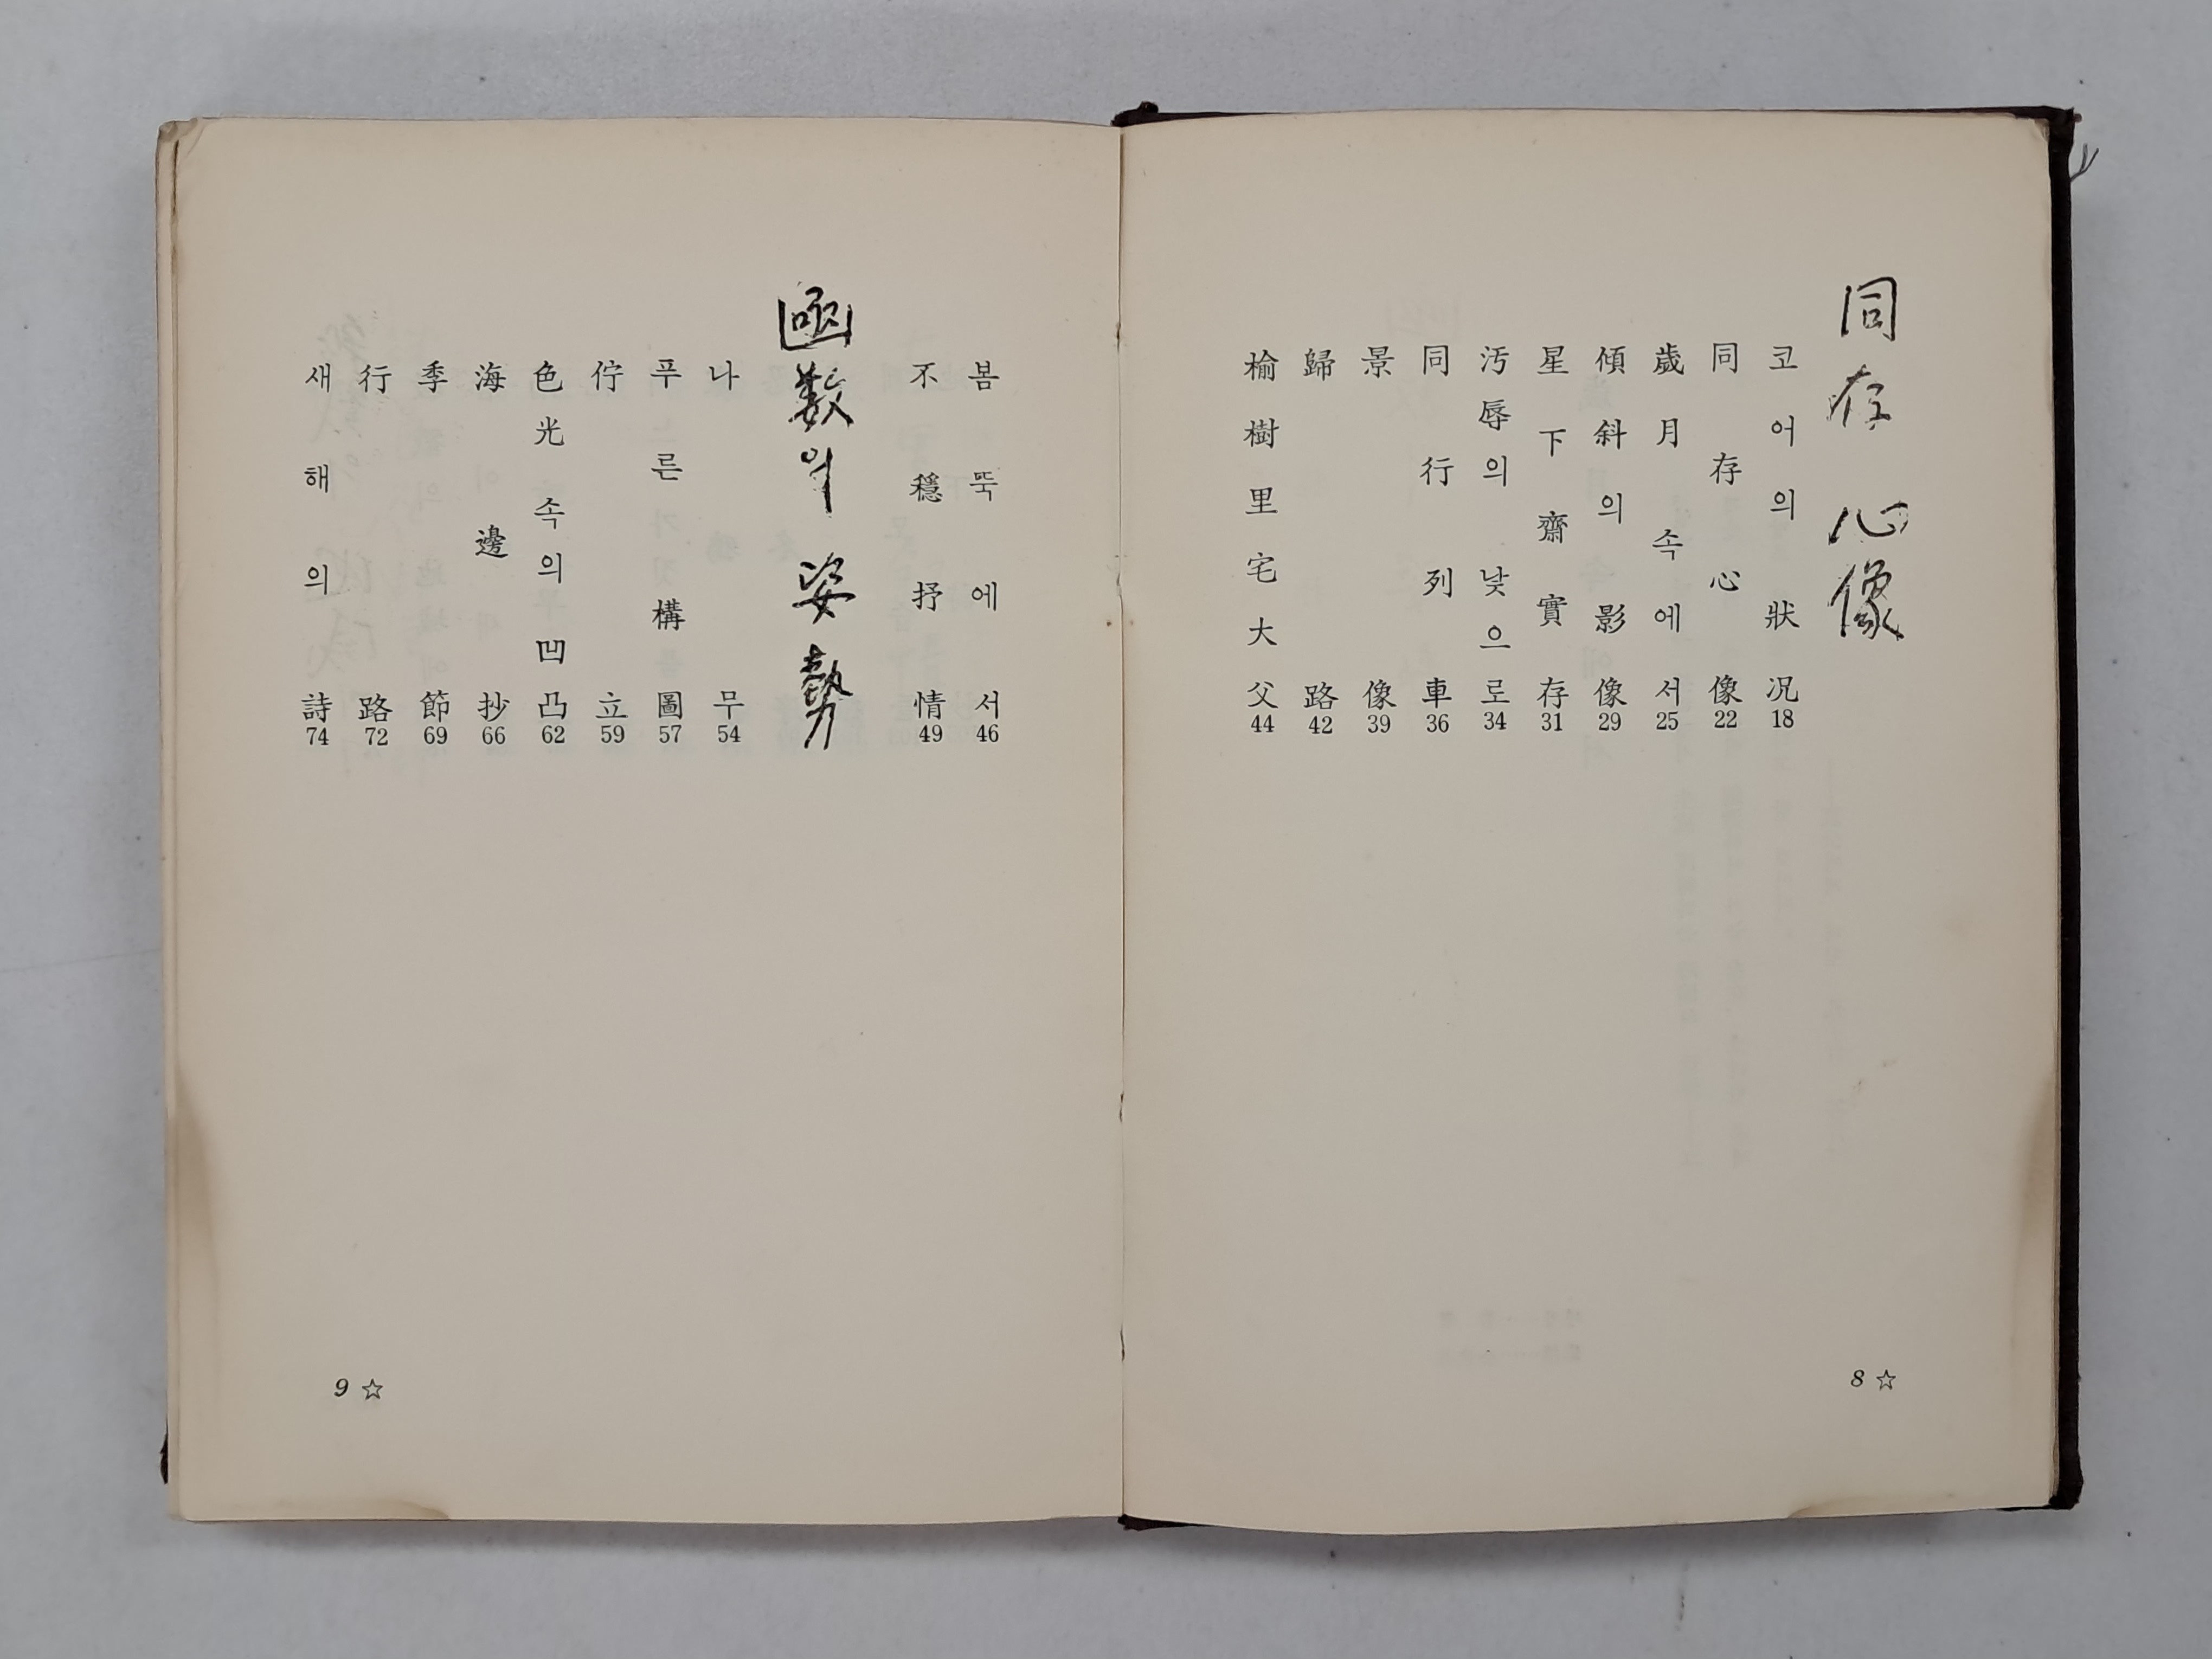 同存 心像
코어의 狀况 18
同存心像 22
歲月 속에서 25
傾斜의 影像 29
星下齋實存 31
汚辱의 낯으로 34
同行列車 36
景像 39
歸路 42
楡樹里宅大父 44
8 ☆
봄뚝에서 46
不穩抒情 49
函數의 姿勢
나무 54
푸른 構圖 57
佇立 59
色光 속의 凹凸 62
海邊抄 66
季節 69
行路 72
새해의 詩 74
9 ☆